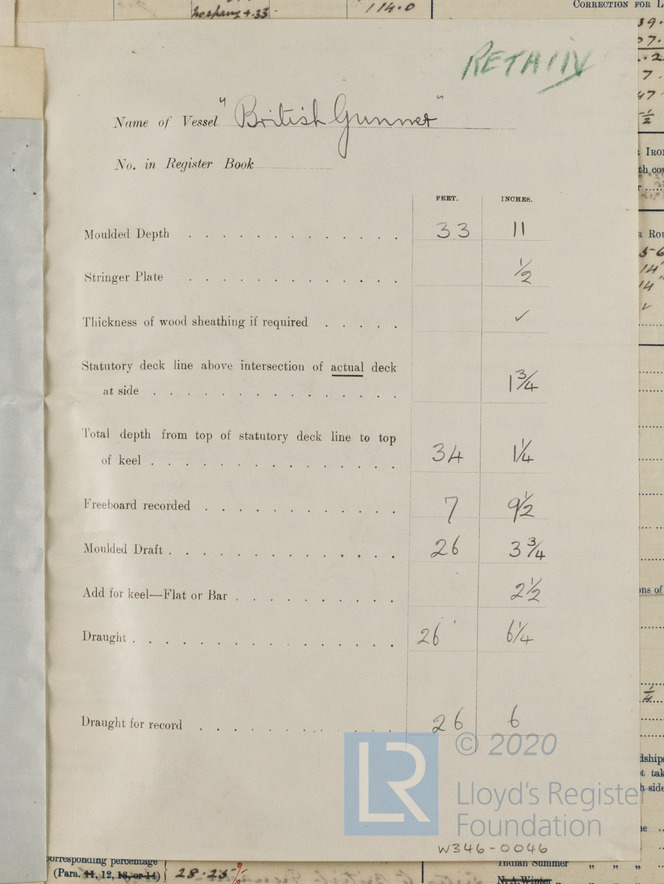 hospang 4.33
114.0
CORRECTION FOR L
RETAIN
Name of Vessel "British Gunner"
No. in Register Book
FEET. INCHES.
Moulded Depth 33 11
Stringer Plate ½
Thickness of wood sheathing if required ✓
Statutory deck line above intersection of actual deck
at side 1¾
Total depth from top of statutory deck line to top
of keel 34 1¼
Freeboard recorded 7 9½
Moulded Draft 26 3¾
Add for keel—Flat or Bar 2½
Draught 26 6¼
Draught for record 26 6
LR © 2020
Lloyd's Register
Foundation
W346-0046
orresponding percentage
(Para. 11, 12, 13, or 14) 28.25%
Indian Summer „ „
N.A. Winter